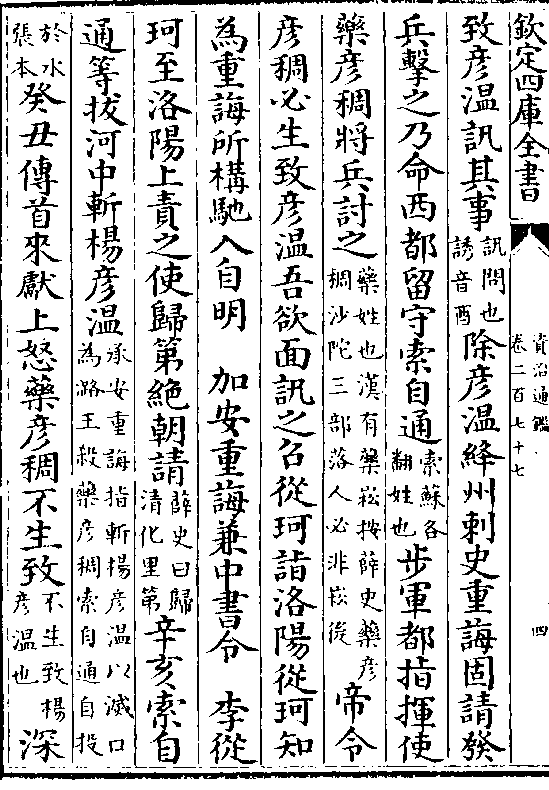 欽定四庫全書
資治通鑑
卷二百七十七
四
致彦温訊其事
訊問也
誘音酉
除彦温絳州刺史重誨固請發
兵擊之乃命西都留守索自通
索蘇各
翻姓也
步軍都指揮使
藥彦稠將兵討之
藥姓也漢有藥崧按薛史藥彦
稠沙陀三部落人必非崧後
帝令
彦稠必生致彦温吾欲面訊之召從珂詣洛陽從珂知
為重誨所構馳入自明 加安重誨兼中書令 李從
珂至洛陽上責之使歸第絶朝請
薛史曰歸
清化里第
辛亥索自
通等拔河中斬楊彦温
承安重誨指斬楊彦温以滅口
為潞王殺藥彦稠索自通自投
於水
張本
癸丑傳首來獻上怒藥彦稠不生致
不生致楊
彦温也
深